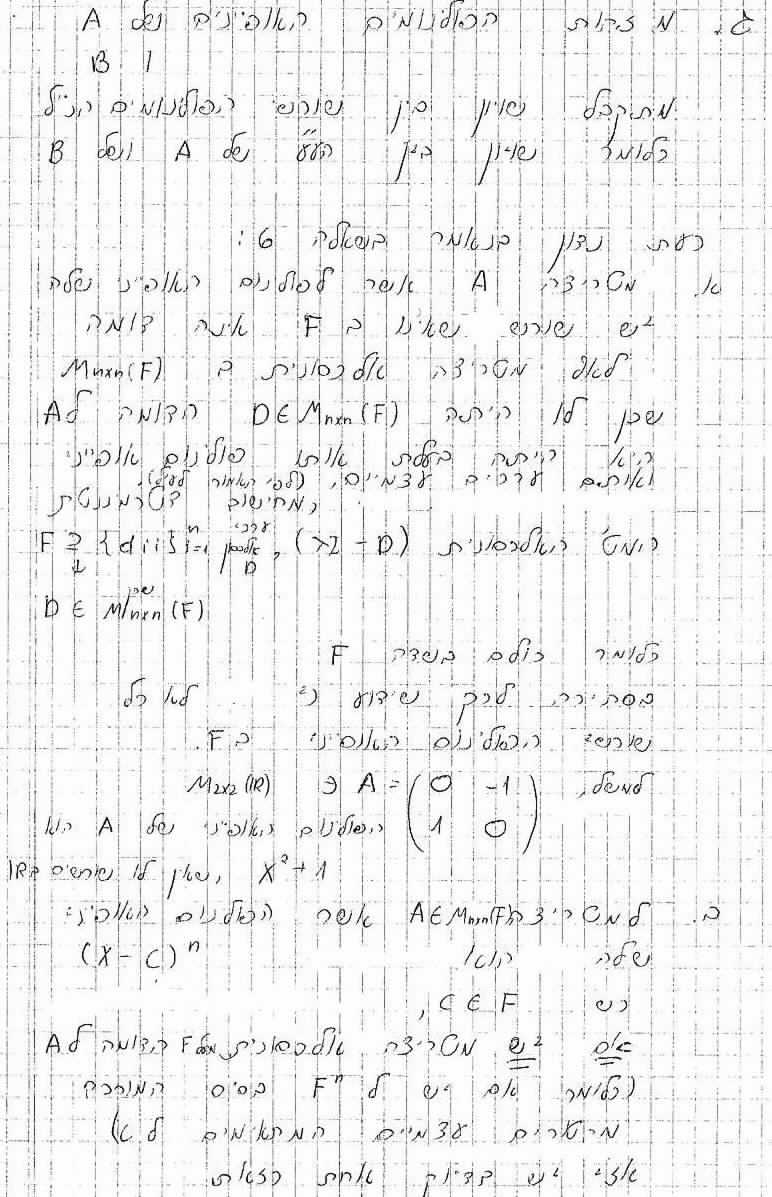 ג. מזהות הפולינומים האופיינים של A
ו B
מתקבל שוויון בין שורשי הפולינומים הנ"ל
כלומר שוויון בין הע"ע של A ושל B
כעת נדון בנאמר בשאלה 6:
א. מטריצה A אשר לפולינום האופייני שלה
יש שורש שאינו ב F אינה דומה
לאף מטריצה אלכסונית ב Mnxn(F)
שכן לו היתה D∈Mnxn(F) הדומה ל A
היא היתה בעלת אותו פולינום אופייני
ואותם ערכים עצמיים, (לפי האמור לעיל).
מחישוב דטרמיננטת
המט' האלכסונית (λI - D), ערכי אלכסון D {dii}ⁿi=1 ⊆ F
שכן D ∈ Mnxn(F)
כלומר כולם בשדה F
בסתירה לכך שידוע כי לא כל
שורשי הפולינום האופייני ב F.
למשל, M2x2(IR) ∋ A = (0 -1
1 0) הפולינום האופייני של A הוא
X² + 1, שאין לו שורשים ב IR
ב. למטריצה A∈Mnxn(F) אשר הפולינום האופייני
שלה הוא (X - C)ⁿ
כש C ∈ F,
אם יש מטריצה אלכסונית מעל F הדומה ל A
(כלומר אם יש ל Fⁿ בסיס המורכב
מוקטורים עצמיים המתאימים ל A)
אזי יש בדיוק אחת כזאת